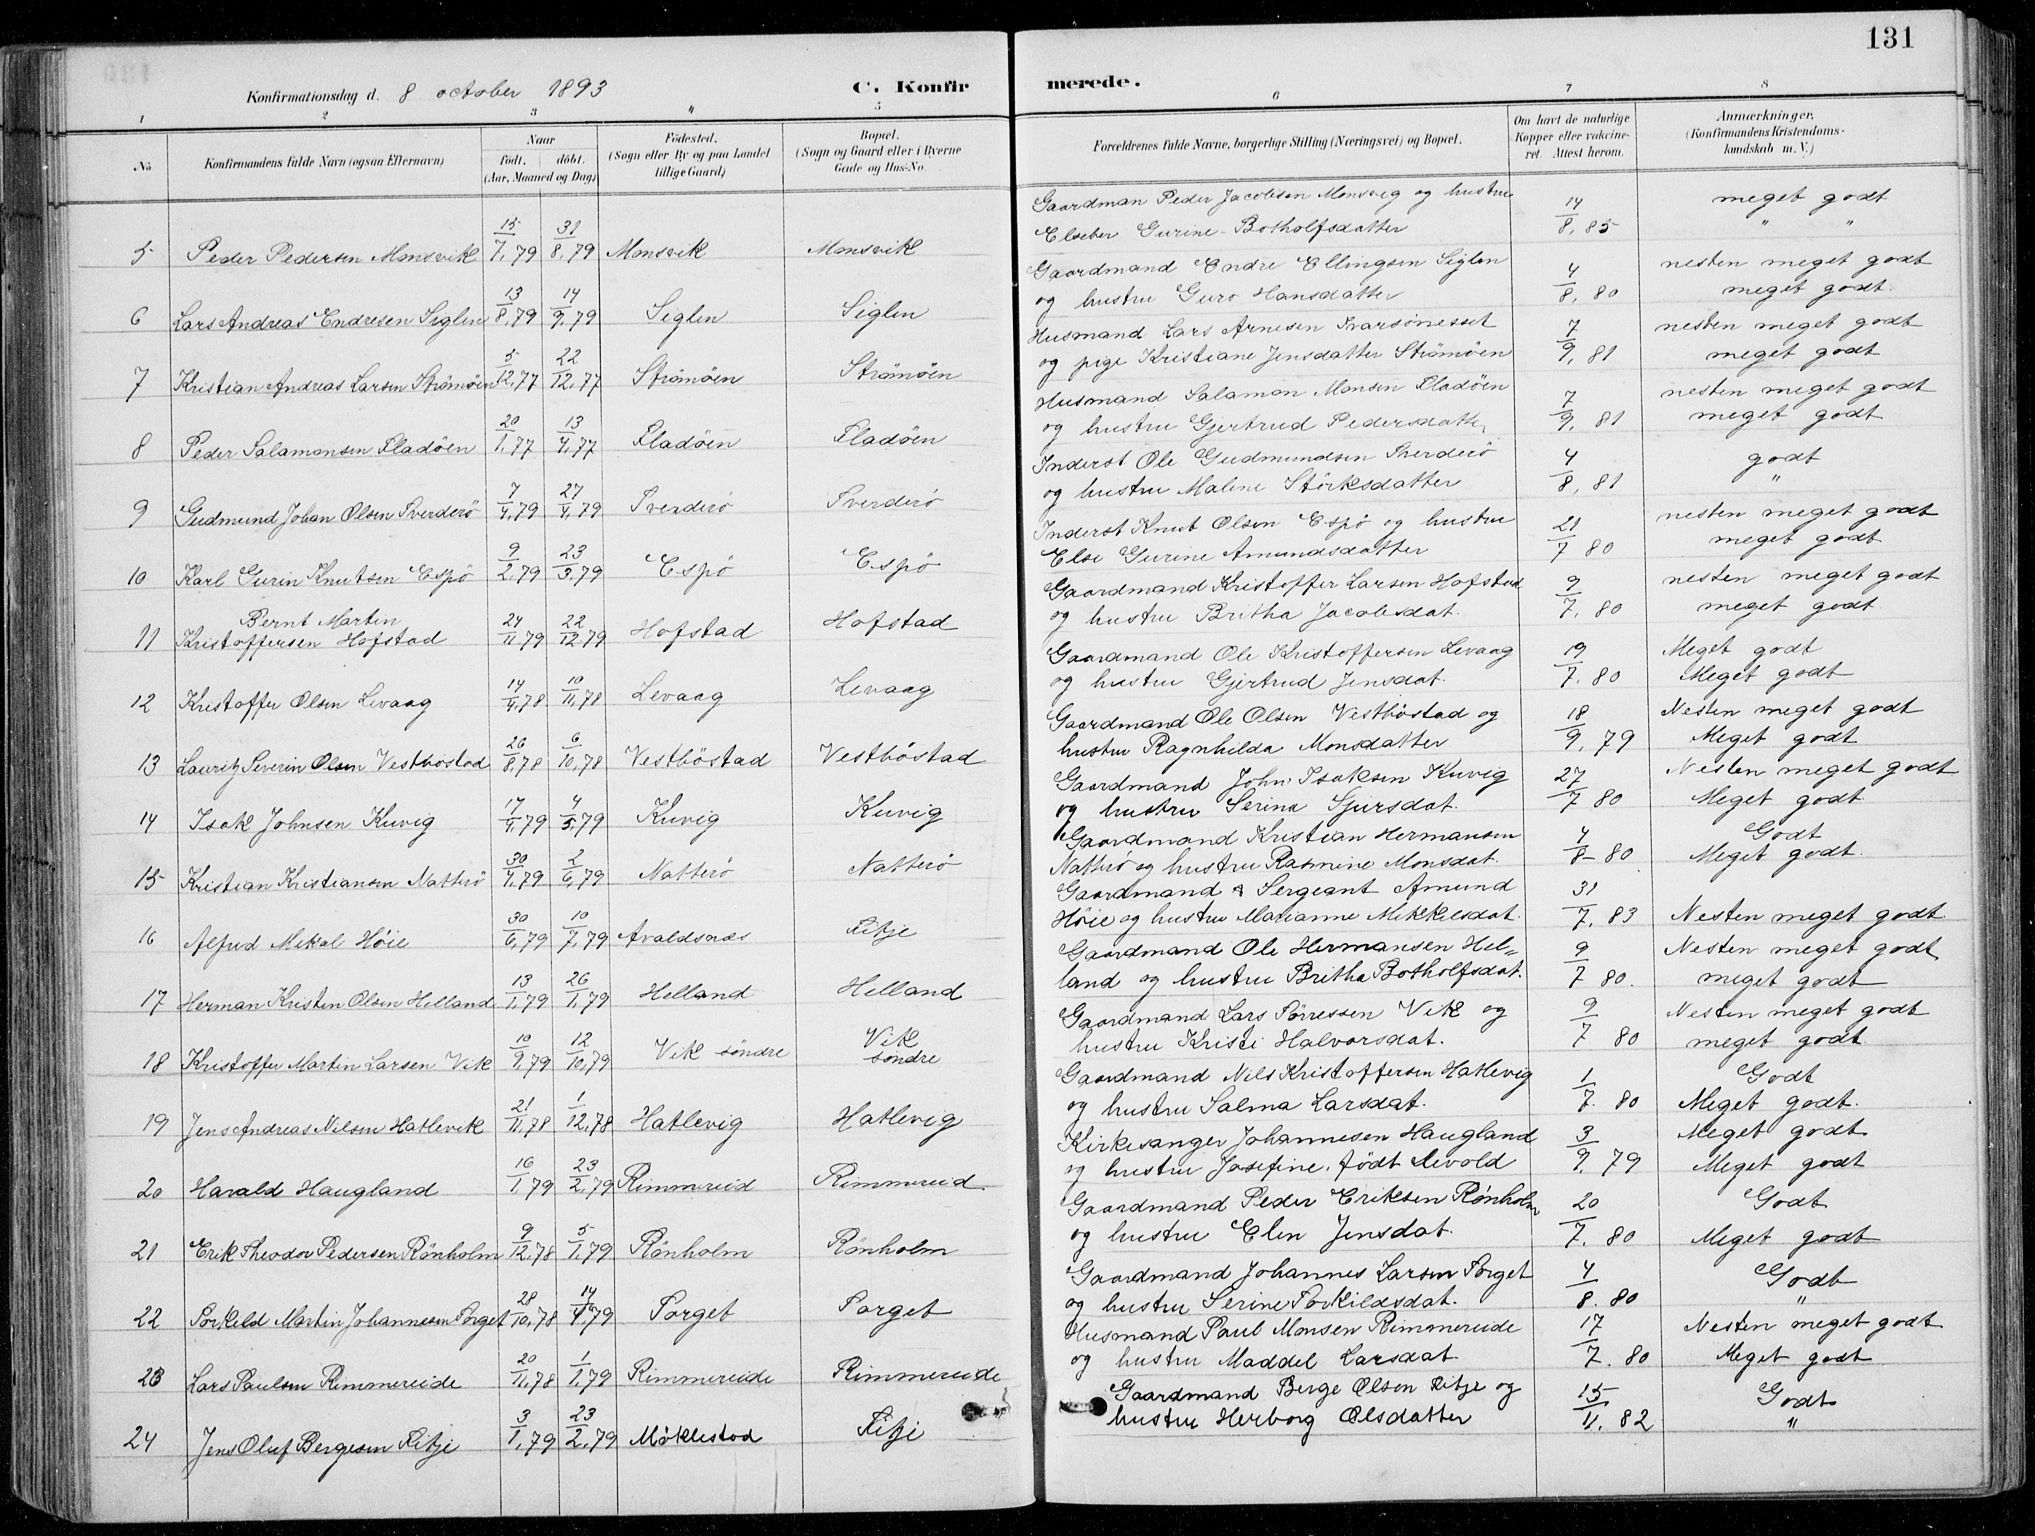 131
Konfirmationsdag d. 8 october 1893
C. Konfirmerede.
1 2 3 4 5 6 7 8
No
Konfirmandens fulde Navn (ogsaa Efternavn)
Naar født. døbt. (Aar, Maaned og Dag)
Fødested. (Sogn eller By og paa Landet tillige Gaard)
Bopæl. (Sogn og Gaard eller i Byerne Gade og Hus-No.
Forældrenes fulde Navne, borgerlige Stilling (Næringsvei) og Bopæl.
Om havt de naturlige Kopper eller vakcineret. Attest herom.
Anmærkninger. (Konfirmandens Kristendomskundskab m. V.)
5 Peder Pedersen Monsvik 15/7, 79 31/8, 79 Monsvik Monsvik Gaardman Peder Jacobsen Monsvig og hustru 14/8, 85 meget godt
Elseber Gurine Botholfsdatter " "
6 Lars Andreas Endresen Siglen 13/8, 79 14/9, 79 Siglen Siglen Gaardmand Endre Ellingsen Siglen 4/8, 80 nesten meget godt
og hustru Guro Hansdatter meget godt
7 Kristian Andreas Larsen Strömöen 5/12, 77 22/12, 77 Strömöen Strömöen Husmand Lars Arnesen Ivarsönesset 7/9, 81 nesten meget godt
og pige Kristiane Jensdatter Strömöen meget godt
8 Peder Salamonsen Fladöen 20/1, 77 13/4, 77 Fladöen Fladöen Husmand Salamon Monsen Fladöen 7/9, 81 nesten meget godt
og hustru Gjertrud Pedersdatter meget godt
9 Gudmund Johan Olsen Sverderö 7/4, 79 27/4, 79 Sverderö Sverderö Inderst Ole Gudmundsen Sverderö 4/8, 81 godt
og hustru Malene Störksdatter "
10 Karl Gurin Knutsen Espö 9/2, 79 23/3, 79 Espö Espö Inderst Knut Olsen Espö og hustru 21/7 80 nesten meget godt
Else Gurine Amundsdatter meget godt
11 Bernt Martin Kristoffersen Hofstad 24/11, 79 22/12, 79 Hofstad Hofstad Gaardmand Kristoffer Larsen Hofstad 9/7, 80 nesten meget godt
og hustru Britha Jacobsdat. meget godt
12 Kristoffer Olsen Levaag 14/9, 78 10/11, 78 Levaag Levaag Gaardmand Ole Kristoffersen Levaag 19/7. 80 Meget godt
og hustru Gjertrud Jensdat. Meget godt
13 Lauritz Severin Olsen Vestböstad 26/8, 78 6/10, 78 Vestböstad Vestböstad Gaardmand Ole Olsen Vestböstad og 18/9, 79 Nesten meget godt
hustru Ragnhilda Monsdatter Meget godt
14 Isak Johnsen Kuvig 17/4, 79 4/5, 79 Kuvig Kuvig Gaardmand John Isaksen Kuvig 27/7 80 Nesten meget godt
og hustru Serina Sjursdat. Meget godt
15 Kristian Kristiansen Natterö 30/4, 79 2/6, 79 Natterö Natterö Gaardmand Kristian Hermansen 4/8- 80 Godt
Natterö og hustru Rasmine Monsdat. Meget godt.
16 Alfred Mikal Höie 30/6, 79 10/7, 79 Avaldsnæs Fitje Gaardmand & Sergeant Amund 31/7, 83
Höie og hustru Marianne Mikkelsdat. Nesten meget godt
17 Herman Kristen Olsen Helland 13/1, 79 26/1, 79 Helland Helland Gaardmand Ole Hermansen Hel= 9/7 80. Nesten meget godt
land og hustru Britha Botholfsdat. meget godt
18 Kristoffer Martin Larsen Vik 10/9, 79 12/10, 79 Vik söndre Vik söndre Gaardmand Lars Sörressen Vik og 9/7 80 Nesten meget godt
hustru Kristi Halvorsdat. meget godt
19 Jens Andreas Nilsen Hatlevik 21/11, 78 1/12, 78 Hatlevig Hatlevig Gaardmand Nils Kristoffersen Hatlevig 1/7. 80 Godt
og hustru Salma Larsdat. Meget godt.
20 Harald Haugland 16/1, 79 23/2, 79 Rimmereid Rimmereid Kirkesanger Johannesen Haugland 3/9, 79 Meget godt
og hustru Josefine, født Levold Meget godt
21 Erik Theodor Pedersen Rönholm 9/12, 78 5/1, 79 Rönholm Rönholm Gaardmand Peder Eriksen Rönholm 20/7. 80 Godt
og hustru Elen Jensdat. Meget godt
22 Torkild Martin Johannesen Torget 28/10, 78 14/4, 79 Torget Torget Gaardmand Johannes Larsen Torget 4/8. 80 Godt
og hustru Serine Torkildsdat. "
23 Lars Paulsen Rimmereide 20/11, 78 1/1, 79 Rimmereide Rimmereide Husmand Paul Monsen Rimmereide 17/7. 80 Nesten meget godt
og hustru Maddel Larsdat. Meget godt
24 Jens Oluf Bergesen Fitje 3/1, 79 23/2, 79 Möklestad Fitje Gaardmand Berge Olson Fitje og 15/11. 82 Godt
hustru Herborg Olsdatter "